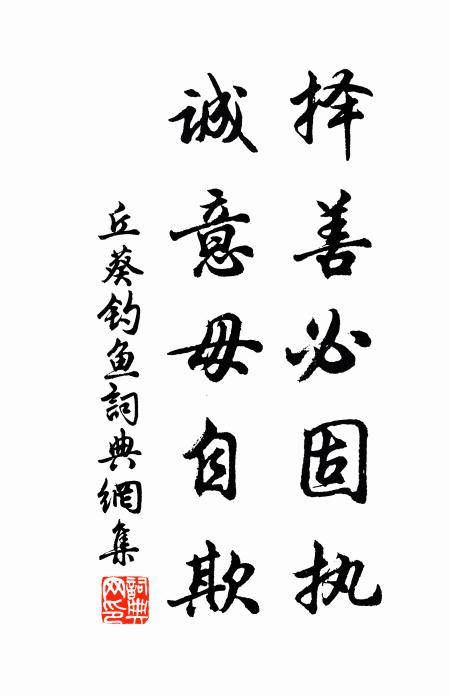 择善必固执
诚意毋自欺
丘葵钓鱼詞典網集
詞典网印